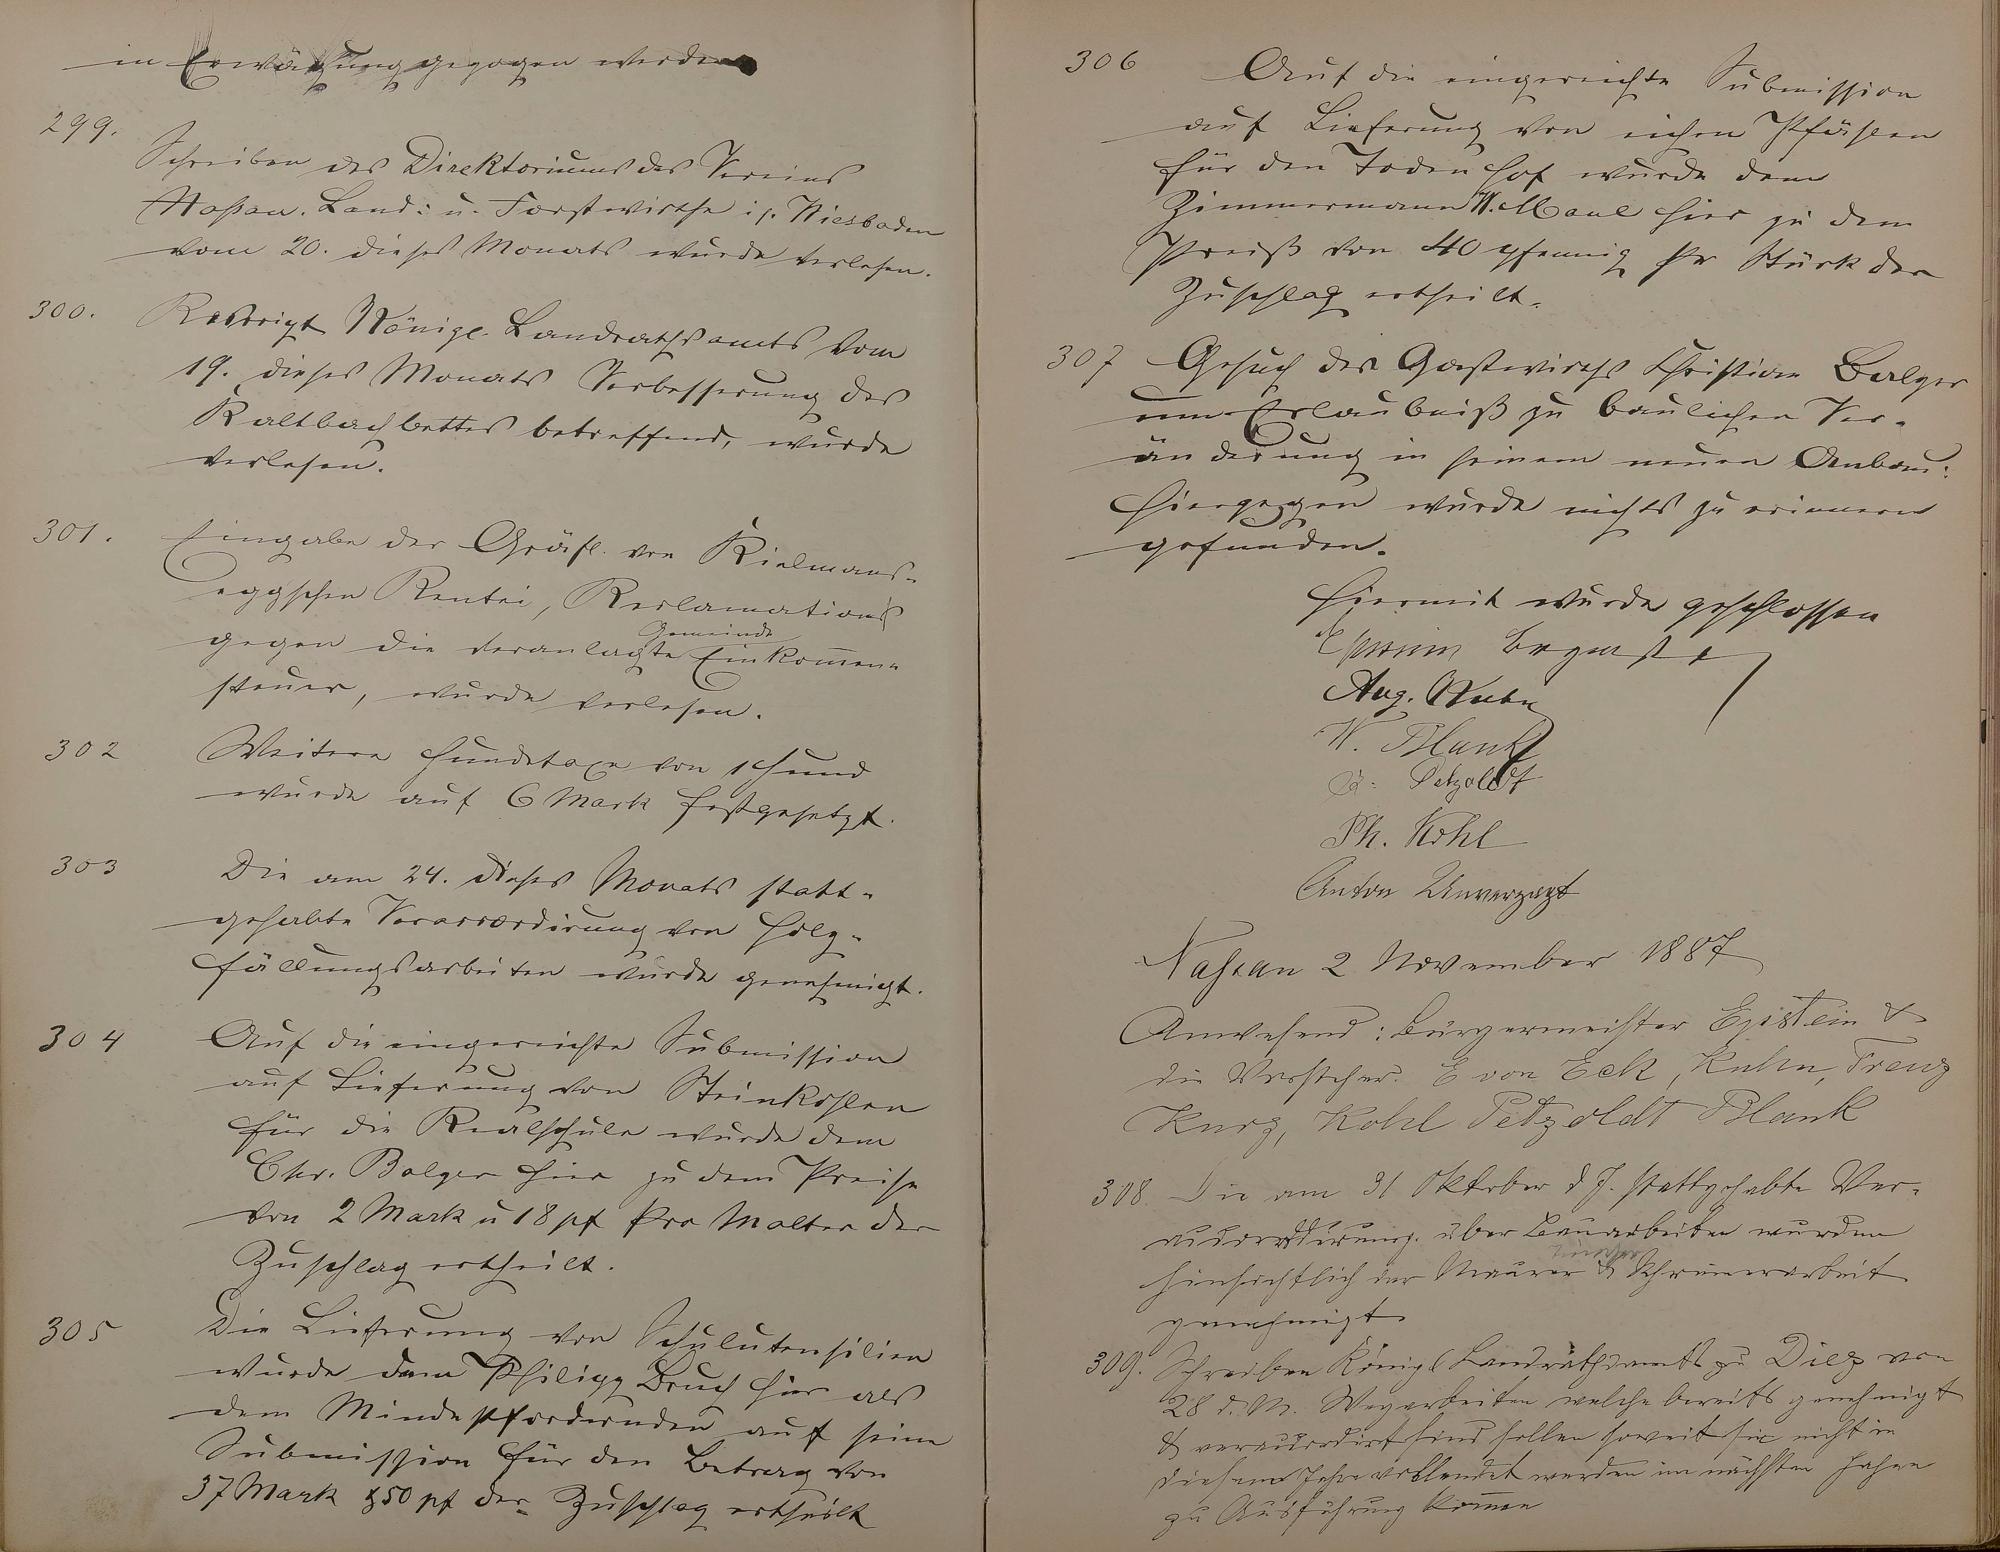 in Erwägung gezogen werden
299.
Schreiben des Direktoriums des Vereins
Nassau. Land: u. Forstwirthe in Wiesbaden
vom 20. dieses Monats wurde verlesen.
300.
Reskript Königl. Landrathsamts vom
19. dieses Monats Verbesserung des
Kaltbachbettes betreffend, wurde
verlesen.
301.
Eingabe der Gräfl. von Kielmans-
eggschen Rentei, Reclamation
gegen die veranlagte Gemeinde Einkommen-
steuer, wurde verlesen.
302
Weitere Hundetaxe von 1 Hund
wurde auf 6 Mark festgesetzt.
303
Die am 24. dieses Monats statt-
gehabte Veraccordirung von Holz-
fällungsarbeiten wurde genehmigt.
304
Auf die eingereichte Submission
auf Lieferung von Steinkohlen
für die Realschule wurde dem
Chr. Balzer hier zu dem Preise
von 2 Mark u 18 pf pro Malter der
Zuschlag ertheilt.
305
Die Lieferung von Schulutensilien
wurde dem Philipp Bruch hier als
dem Mindestfordernden auf seine
Submission für den Betrag von
37 Mark & 50 pf der Zuschlag ertheilt
306
Auf die eingereichte Submission
auf Lieferung von eichen Pfählen
für den Todenhof wurde dem
Zimmermann W. Maul hier zu dem
Preiß von 40 Pfennig pr Stück der
Zuschlag ertheilt.
307
Gesuch des Gastwirths Christian Balzer
um Erlaubniß zu baulichen Ver-
änderung in seinem neuen Anbau:
Hiergegen wurde nichts zu erinnern
gefunden.
Hiermit wurde geschlossen
Aug. Kuhn
W. Blank
Petzoldt
Ph. Kohl
Anton Unverzagt
Nassau 2 November 1887
Anwesend: Bürgermeister Epstein &
die Vorsteher. E von Eck, Kuhn, Trenz
Kurz, Kohl Petzoldt Blank
308. Die am 31 Oktober d J. stattgehabte Ver-
accordirung. über Bauarbeiten wurden
hinsichtlich der Maurer & Schreinerarbeit
genehmigt
309. Schreiben Königl Landrathsamts zu Diez von
28 d. M. Wegarbeiten welche bereits genehmigt
& veraccordirt sind sollen soweit sie nicht in
diesem Jahre vollendet werden im nächsten Jahre
zu Ausführung kommen